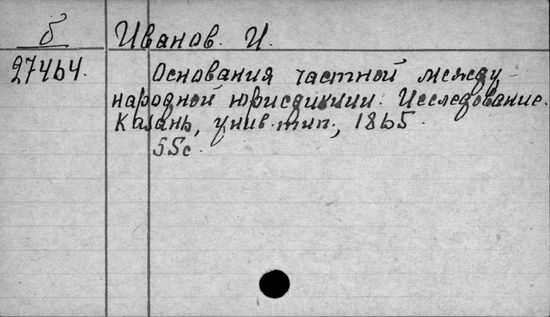 б Иванов. И.
27464. Основания частной между-
народной юрисдикции. Исследование.
Казань, унив. тип., 1865.
55с.